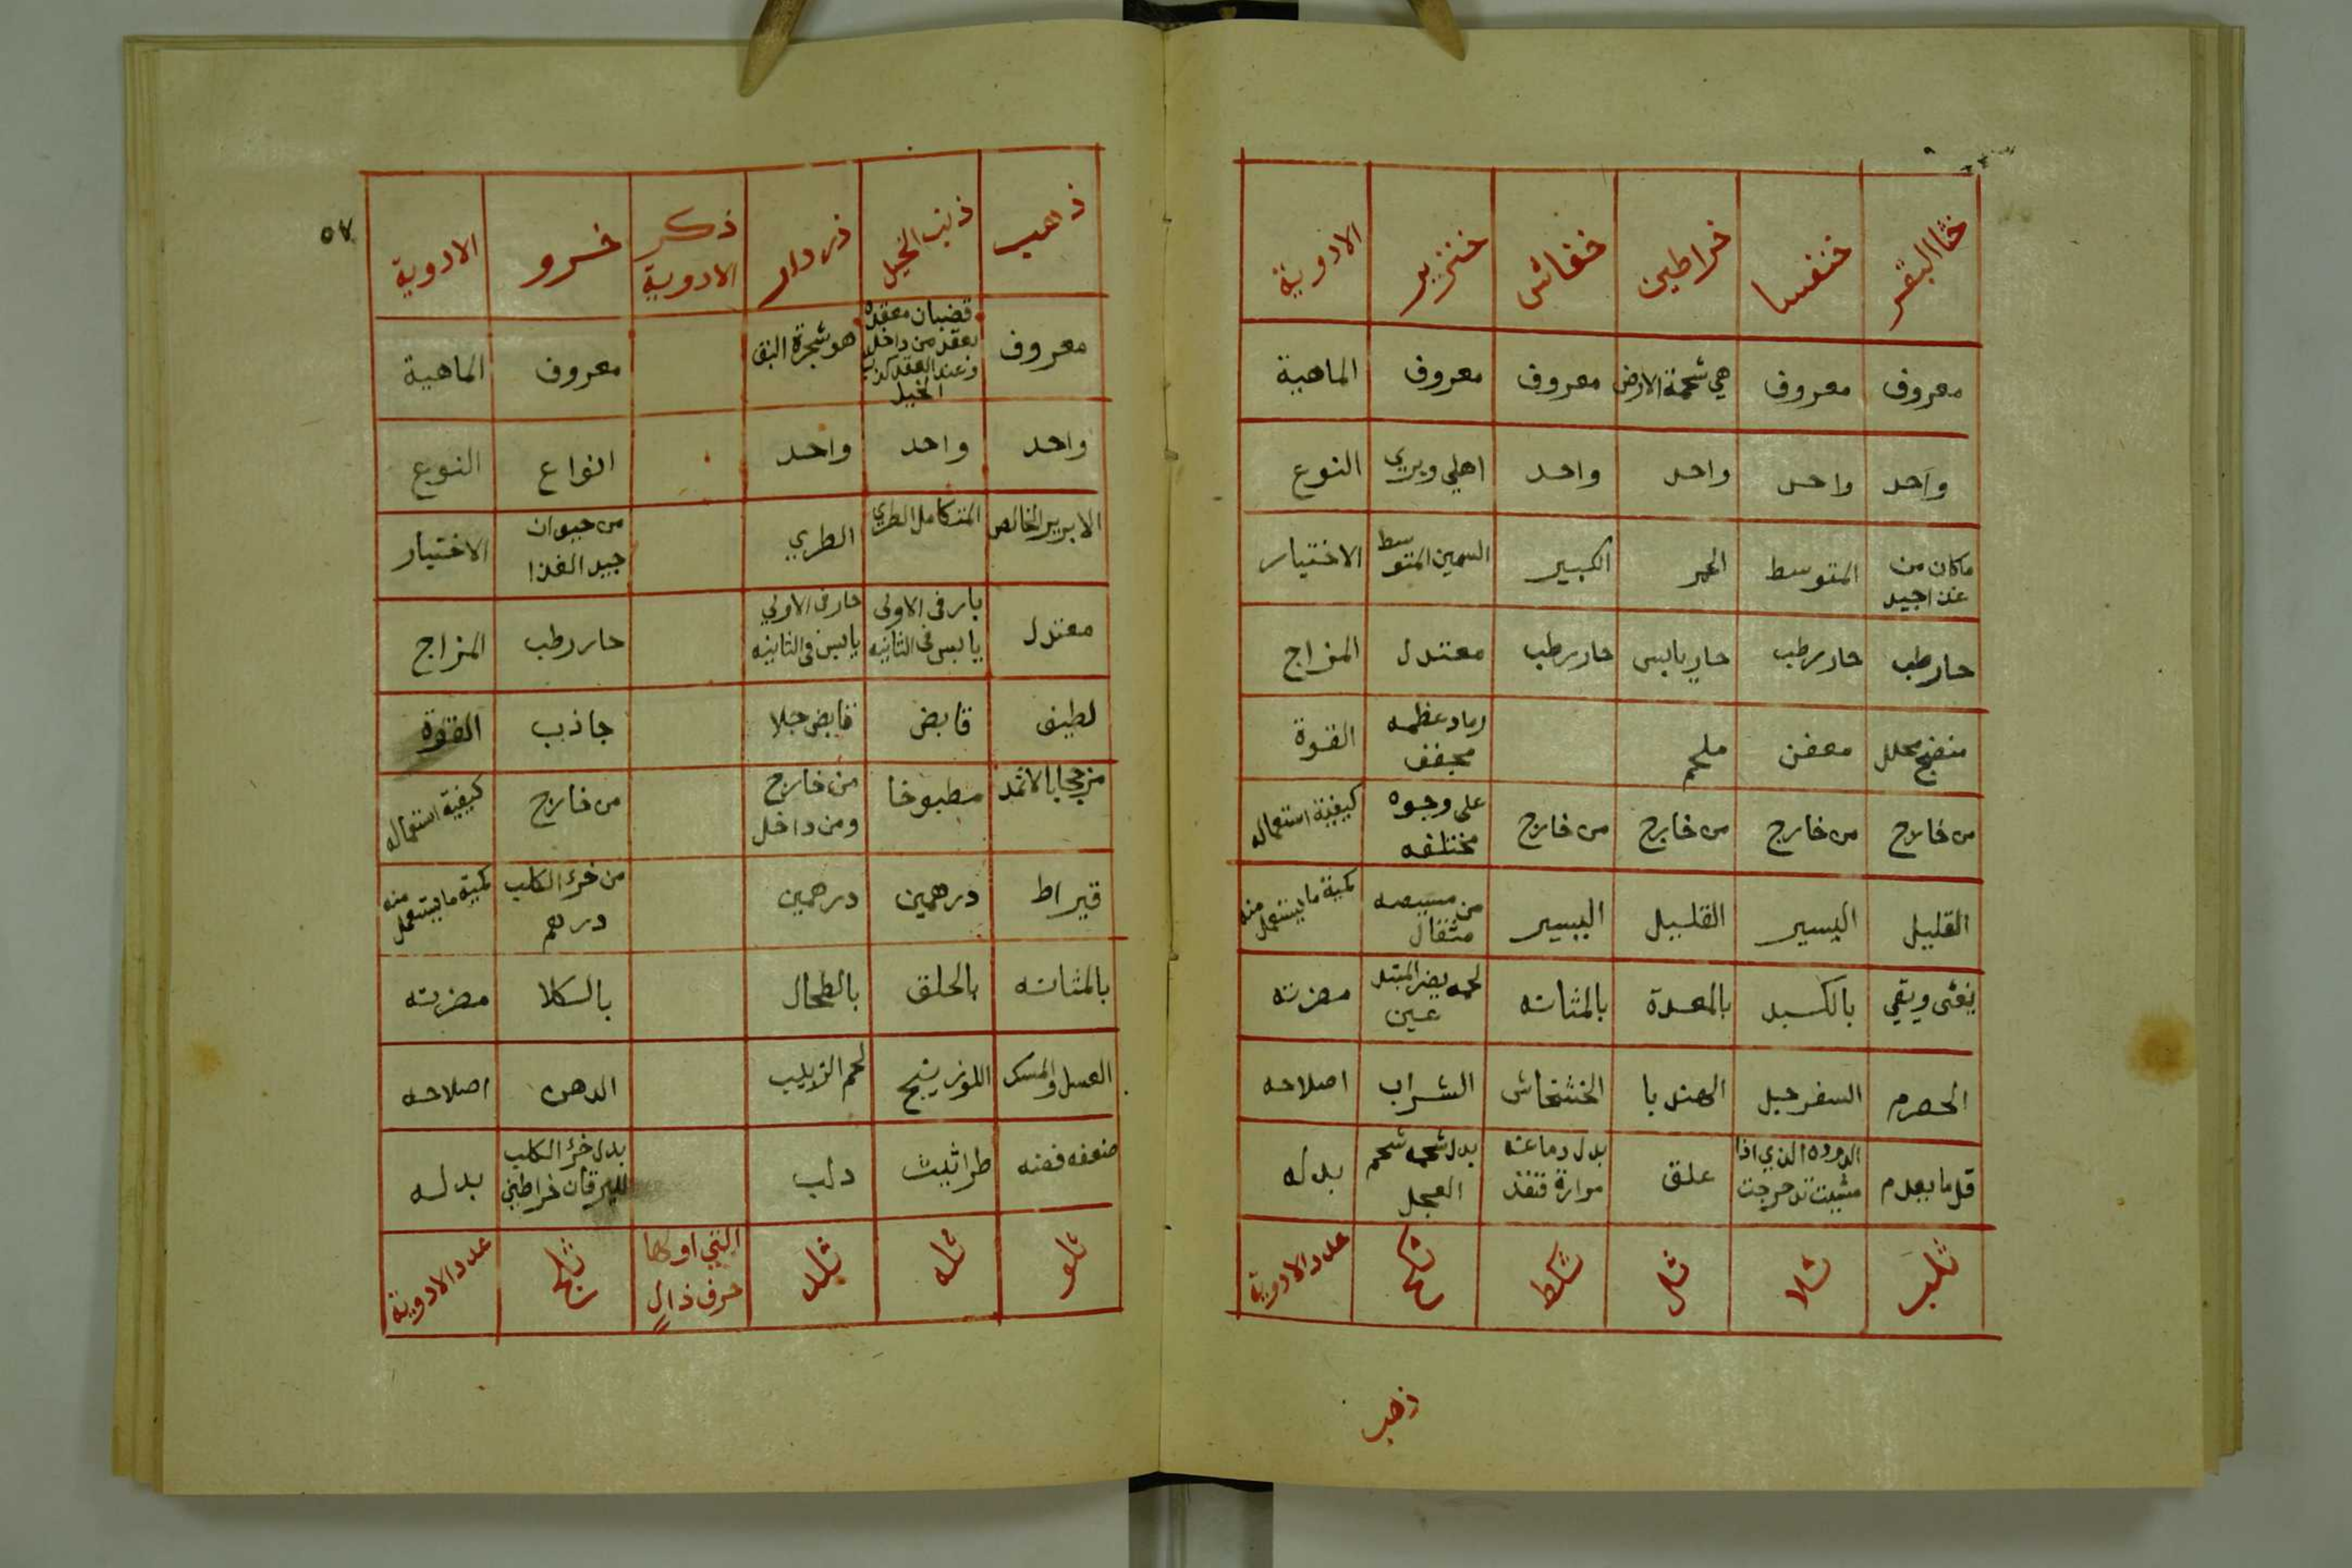 خثا البقر | خنفسا | خراطين | خفاش | خنزير | الادوية
معروف | معروف | هي شحمة الارض | معروف | معروف | الماهية
واحد | واحد | واحد | واحد | اهلي وبري | النوع
ماكان من | المتوسط | الحمر | الكبير | السمين المتوسط | الاختيار
حار رطب | حار رطب | حار يابس | حار رطب | معتدل | المزاج
منضج محلل | معفن | ملحم | رماد عظمه مجفف | القوة
من خارج | من خارج | من خارج | من خارج | على وجوه مختلفه | كيفية استعماله
القليل | اليسير | القليل | اليسير | من مثقال | كمية ما يستعمل منه
يغثى ويقي | بالكبد | بالمعدة | بالمثانه | لحمه يضر | مضرته
الحصرم | السفرجل | الهندبا | الخشخاش | الشراب | اصلاحه
قل ما يعدم | الدوده الذي اذا مشيت تدحرجت | علق | بدل دماغه مرارة قنفذ | بدل شحمه شحم العجل | بدله
ثلب | ثلا | ثل | ثكط | ثكح | عدد الادوية
ذهب
٥٧
ذهب | ذنب الخيل | دردار | ذكر الادوية | خرو | الادوية
معروف | قضبان معقده تعقد من داخل وعند العقد كذنب الخيل | هو شجرة البق | معروف | الماهية
واحد | واحد | واحد | انواع | النوع
الابريز الخالص | المتكامل الطري | الطري | من حيوان جيد الغذا | الاختيار
معتدل | بارد في الاولى يابس في الثانيه | حار في الاولي يابس في الثانيه | حار رطب | المزاج
لطيف | قابض | قابض جلا | جاذب | القوة
مزجا بالاثمد | مطبوخا | من خارج ومن داخل | من خارج | كيفية استعماله
قيراط | درهمين | درهمين | من خرؤ الكلب درهم | كمية ما يستعمل منه
بالمثانه | بالحلق | بالطحال | بالكلا | مضرته
العسل والمسك | اللوزينج | لحم الزبيب | الدهن | اصلاحه
ضعفه فضه | طراثيث | دلب | بدل خرؤ الكلب لليرقان خراطين | بدله
ثلو | ثله | ثلد | التي اولها حرف ذال | ثلج | عدد الادوية